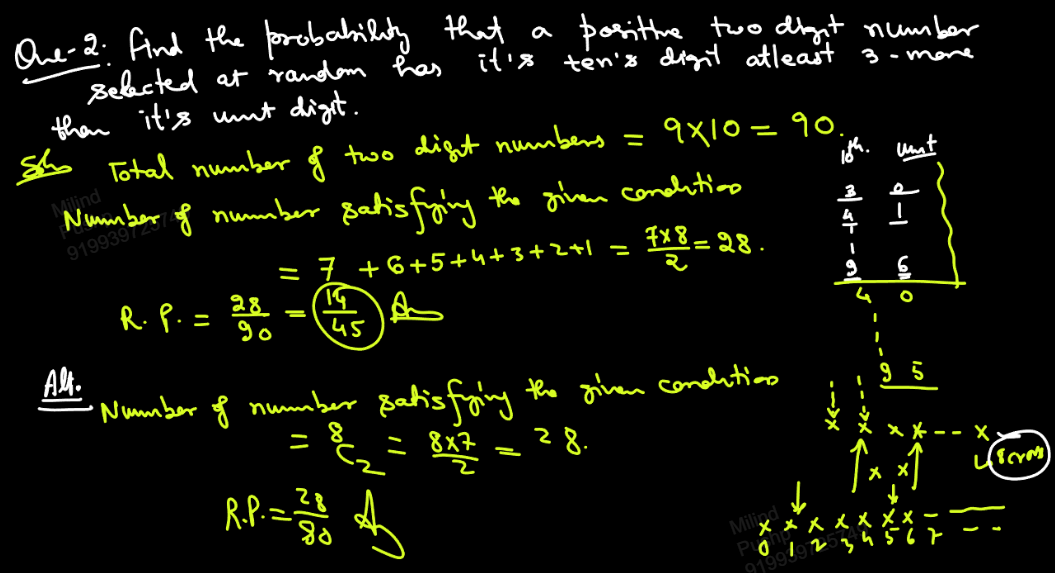 Que-2: find the probability that a positive two digit number
selected at random has it's ten's digit atleast 3-more
than it's unit digit.
Soln Total number of two digit numbers = 9×10 = 90.
Number of number satisfying the given condition
= 7 + 6+5+4+3+2+1 = 7×8/2 = 28.
R.P. = 28/90 = 14/45 Ans
10th. unit
3 0
4 1
9 6
4 0
9 5
Alt. Number of number satisfying the given condition
= 8C2 = 8×7/2 = 28.
R.P. = 28/90 A
x x x x -- x
x x
x x x x x x x -
0 1 2 3 4 5 6 7 - -
Milind
919939725740
Milind